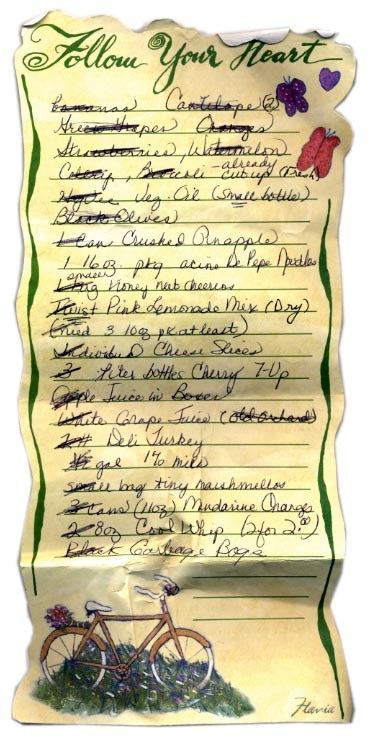 Follow Your Heart
Bananas Cantilope (2)
Green Grapes Oranges
Strawberries, Watermelon
already
Catsip, Broccoli - cut up (Fresh)
Veg. Oil (Small bottle)
Black Olives
1 Can Crushed Pinapple
1 16 oz. pkg acine De Pepe Noodles
smaller
1 bag Honey nut cheerios
Twist Pink Lemonade Mix (Dry)
(Need 3 10oz pk at least)
Individual Cheese Slices
3 liter bottles Cherry 7-Up
Apple Juice in Boxes
White Grape Juice (old orchard)
2# Deli Turkey
gal 1% milk
small bag tiny marshmellos
3 cans (11oz) Mandarine Oranges
2 8oz Cool Whip (2 for 2.00)
Black Garbage Bags
Flavia